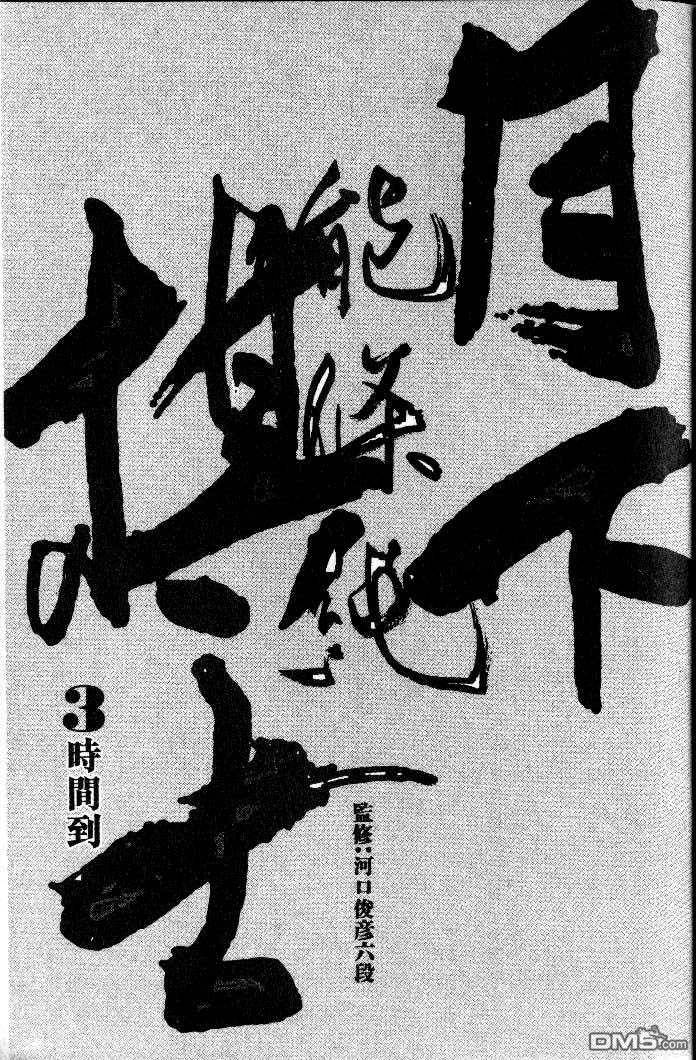 月下
棋士
能條純一
監修：河口俊彦六段
3 時間到
DM5.com